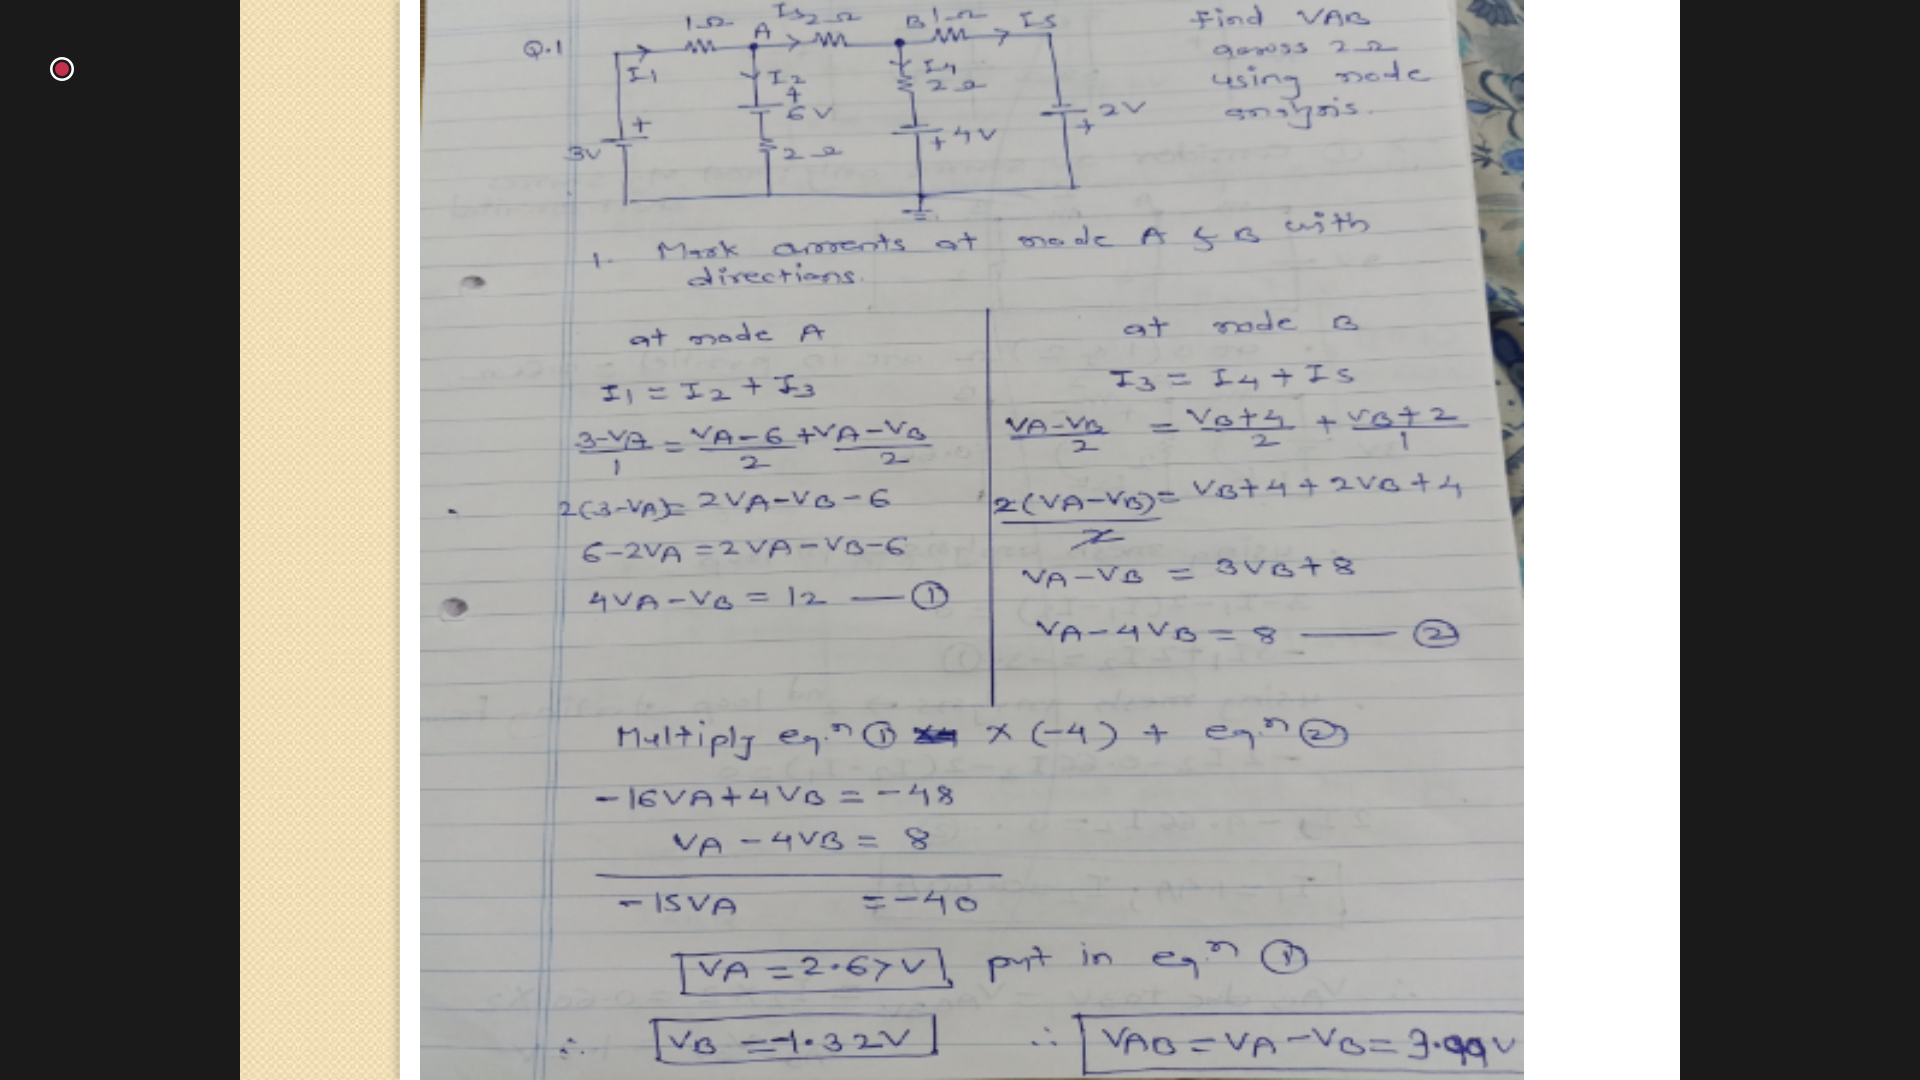 Q.1
1Ω A I3 2Ω B 1Ω I5
I1 I2 I4
+ 6V 2Ω
+ 3V 2Ω + 4V + 2V
Find VAB
across 2Ω
using node
analysis.
1. Mark currents at node A & B with
directions.
at node A
I1 = I2 + I3
3-VA/1 = VA-6/2 + VA-VB/2
2(3-VA) = 2VA-VB-6
6-2VA = 2VA-VB-6
4VA-VB = 12 — ①
at node B
I3 = I4 + I5
VA-VB/2 = VB+4/2 + VB+2/1
2(VA-VB)/2 = VB+4+2VB+4
VA-VB = 3VB+8
VA-4VB = 8 — ②
Multiply eq.n ① × (-4) + eq.n ②
-16VA+4VB = -48
VA-4VB = 8
-15VA = -40
VA = 2.67V put in eq.n ①
∴ VB = -1.32V ∴ VAB = VA-VB = 3.99V